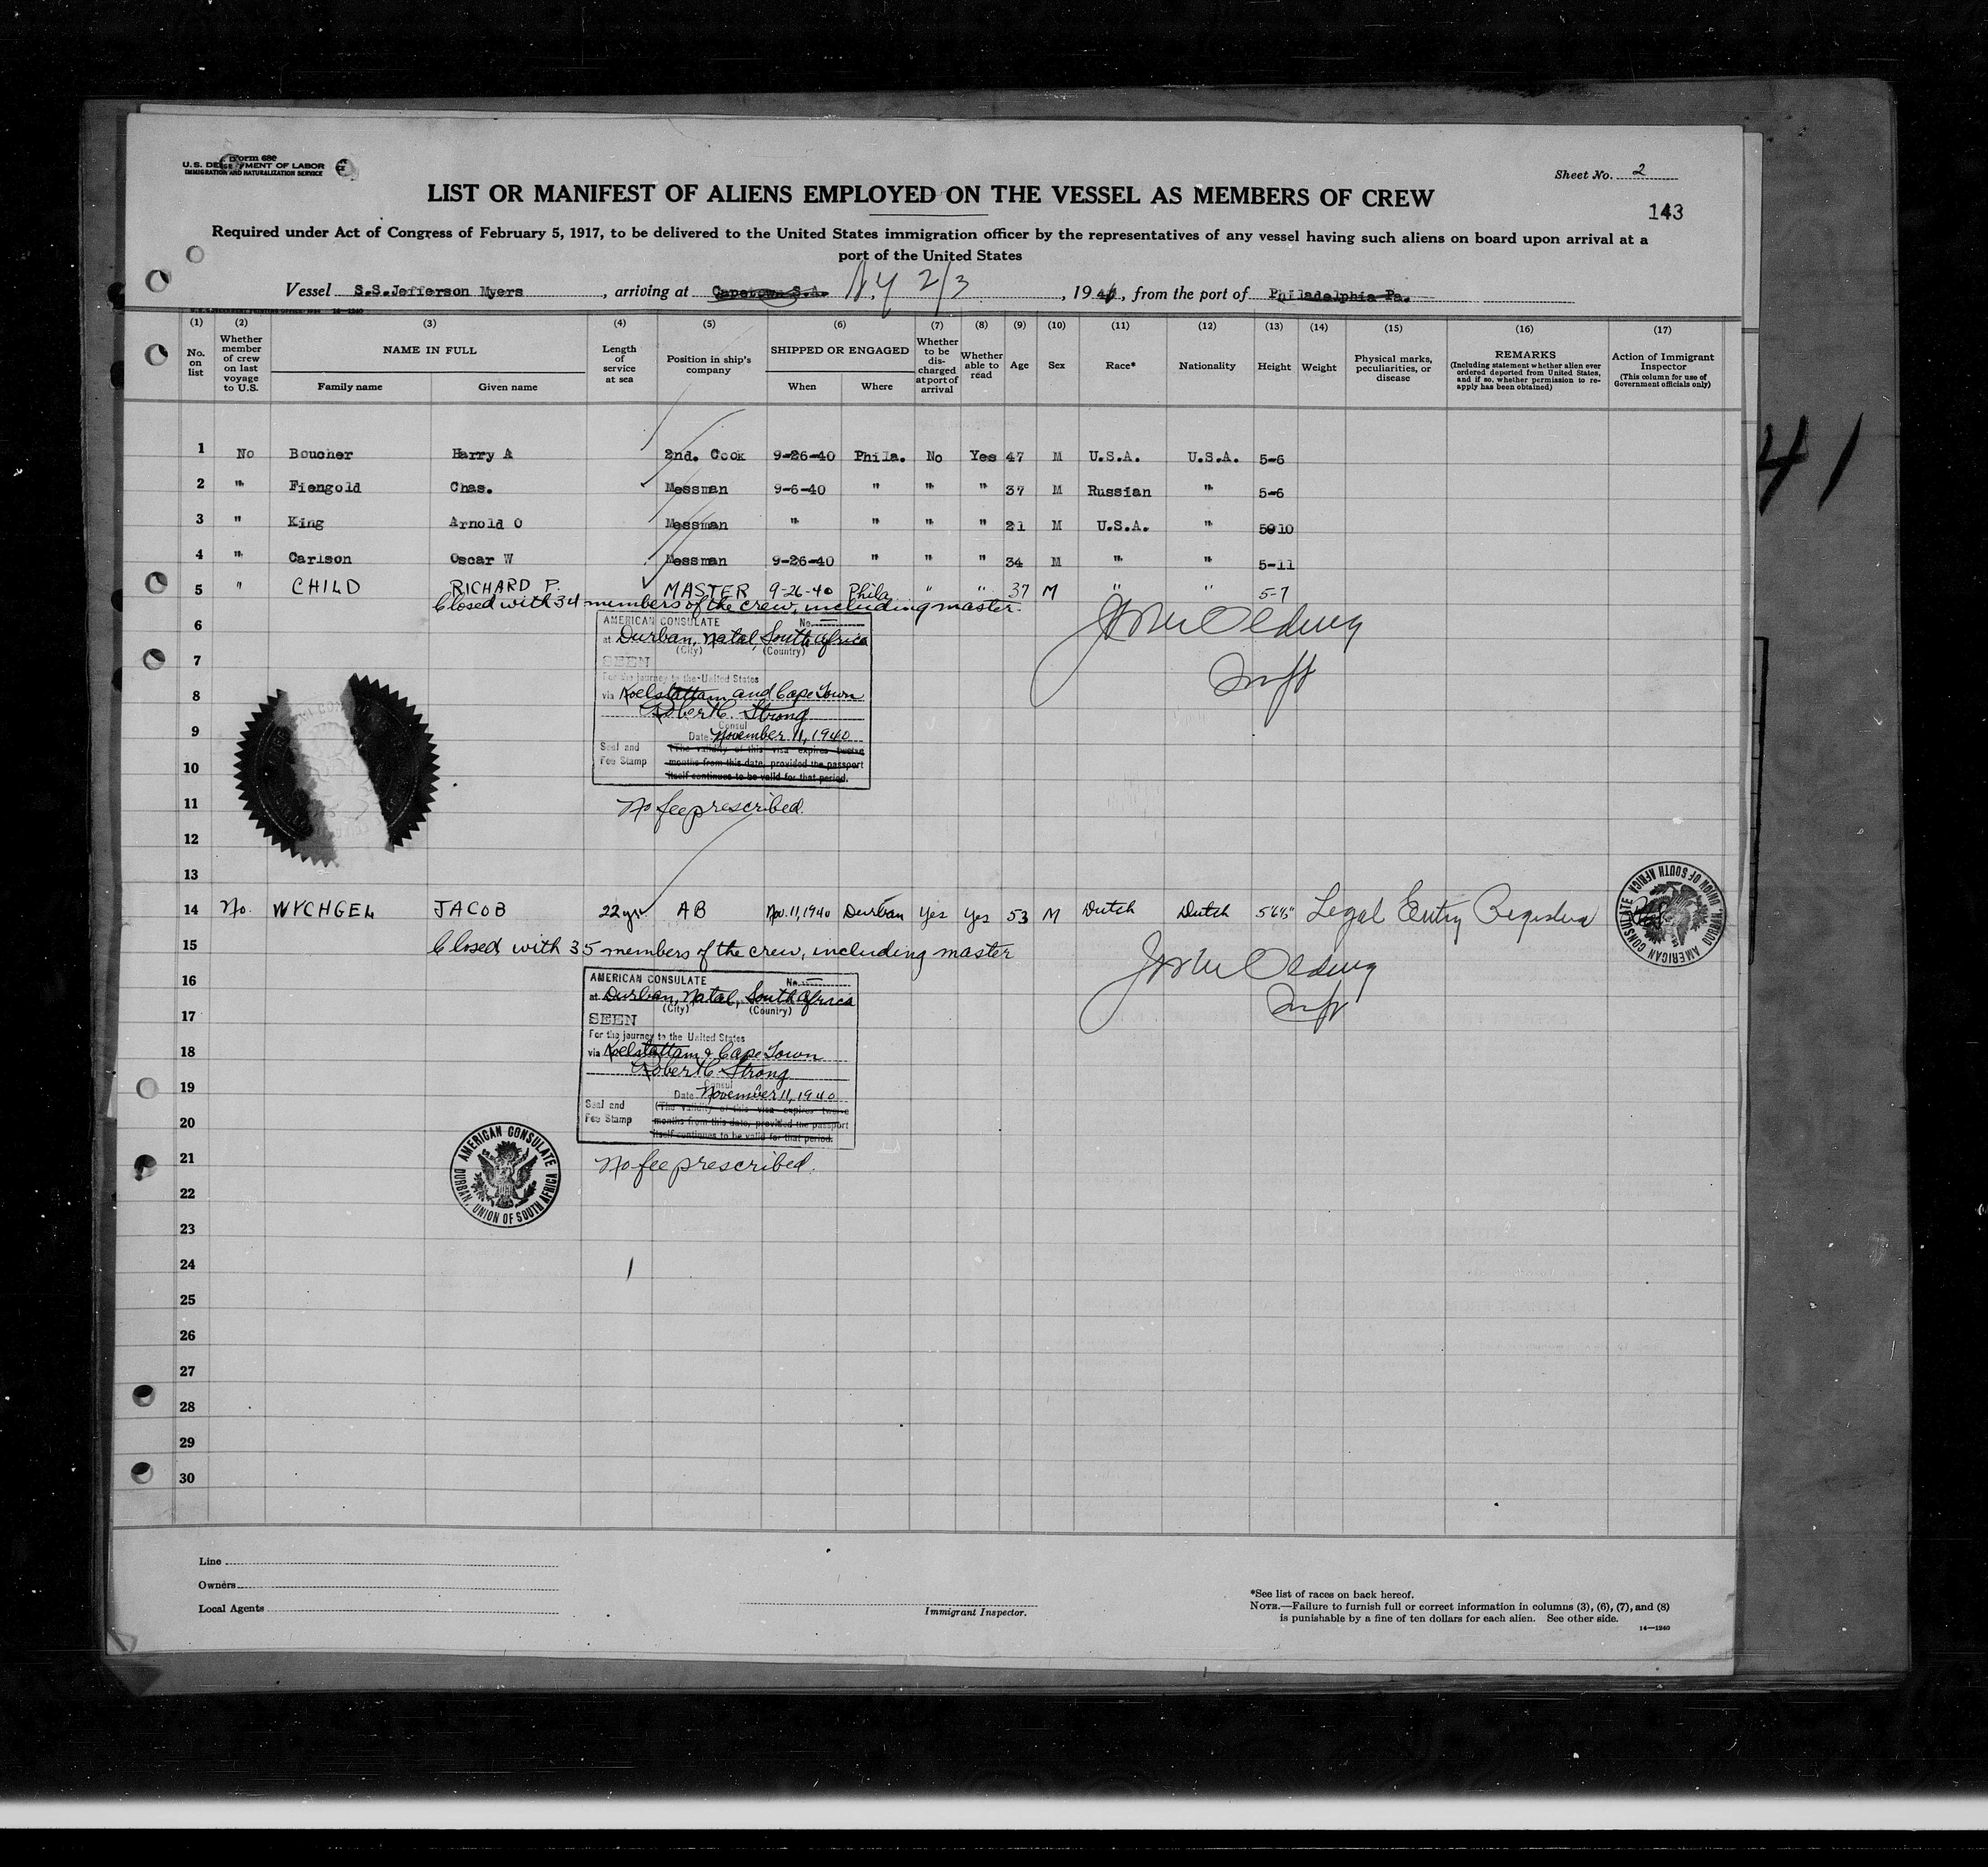 Form 680
U. S. DEPARTMENT OF LABOR
IMMIGRATION AND NATURALIZATION SERVICE
Sheet No. 2
LIST OR MANIFEST OF ALIENS EMPLOYED ON THE VESSEL AS MEMBERS OF CREW
143
Required under Act of Congress of February 5, 1917, to be delivered to the United States immigration officer by the representatives of any vessel having such aliens on board upon arrival at a
port of the United States
Vessel S.S.Jefferson Myers, arriving at Capetown S.A. N.Y 2/3, 1941, from the port of Philadelphia Pa.
(1) (2) (3) (4) (5) (6) (7) (8) (9) (10) (11) (12) (13) (14) (15) (16) (17)
No. on list
Whether member of crew on last voyage to U.S.
NAME IN FULL
Family name
Given name
Length of service at sea
Position in ship's company
SHIPPED OR ENGAGED
When
Where
Whether to be discharged at port of arrival
Whether able to read
Age
Sex
Race*
Nationality
Height
Weight
Physical marks, peculiarities, or disease
REMARKS
(Including statement whether alien ever ordered deported from United States, and if so, whether permission to reapply has been obtained)
Action of Immigrant Inspector
(This column for use of Government officials only)
41
1 No Boucher Harry A 2nd. Cook 9-26-40 Phila. No Yes 47 M U.S.A. U.S.A. 5-6
2 " Fiengold Chas. Messman 9-6-40 " " " 37 M Russian " 5-6
3 " King Arnold O Messman " " " " 21 M U.S.A. " 5010
4 " Carlson Oscar W Messman 9-26-40 " " " 34 M " " 5-11
5 " CHILD RICHARD P. MASTER 9-26-40 Phila " " 37 M " " 5-7
Closed with 34 members of the crew, including master.
6
AMERICAN CONSULATE No.
at Durban, Natal, South Africa
(City) (Country)
7
SEEN
For the journey to the United States
8
via and Cape Town
Robert C. Strong
Consul
9
Date November 11, 1940
Seal and Fee Stamp
(The validity of this visa expires twelve
10
months from this date, provided the passport
itself continues to be valid for that period.
11
No fee prescribed.
12
13
14 No. WYCHGEL JACOB 22 yr AB Nov. 11, 1940 Durban Yes Yes 53 M Dutch Dutch 5'6½" Legal Entry
AMERICAN CONSULATE DURBAN, UNION OF SOUTH AFRICA
15
Closed with 35 members of the crew, including master
16
AMERICAN CONSULATE No.
at Durban, Natal, South Africa
(City) (Country)
17
SEEN
For the journey to the United States
18
via & Cape Town
Robert C. Strong
Consul
19
Date November 11, 1940
Seal and Fee Stamp
(The validity of this visa expires twelve
20
months from this date, provided the passport
itself continues to be valid for that period.
21
No fee prescribed.
AMERICAN CONSULATE DURBAN, UNION OF SOUTH AFRICA
22
23
24
25
26
27
28
29
30
Line
Owners
Local Agents
Immigrant Inspector.
*See list of races on back hereof.
NOTE.—Failure to furnish full or correct information in columns (3), (6), (7), and (8)
is punishable by a fine of ten dollars for each alien. See other side.
14—1240